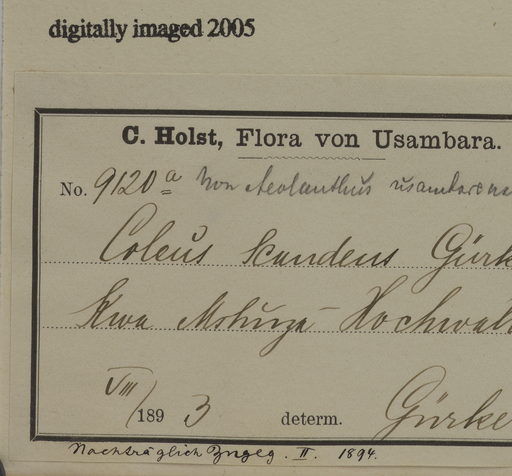 digitally imaged 2005
C. Holst, Flora von Usambara.
No. 9120 a von Aeolanthus
Coleus scandens Gürk
Kwa Mshuza - Hochwal
VIII/1893 determ. Gürke
Nachträglich Zugeg. II. 1894.